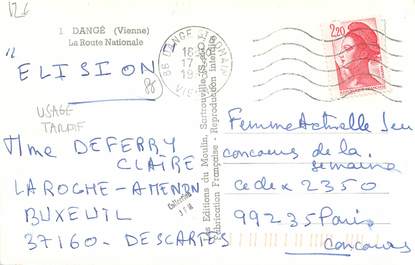 1. DANGÉ (Vienne)
La Route Nationale
" ELISION "
86
USAGE
TARIF
Mme DEFERRY
CLAIRE
LA ROCHE-AMENON
BUXEUIL
37160 - DESCARTES
86 DANGE ST ROMAIN
16
17
19
VIENNE
2,20
Les Editions du Moulin, Sartrouville
Fabrication Française - Reproduction interdite
Collection
Femme Actuelle Jeu
concours de la
semaine
cedex 2350
99235 Paris
concours